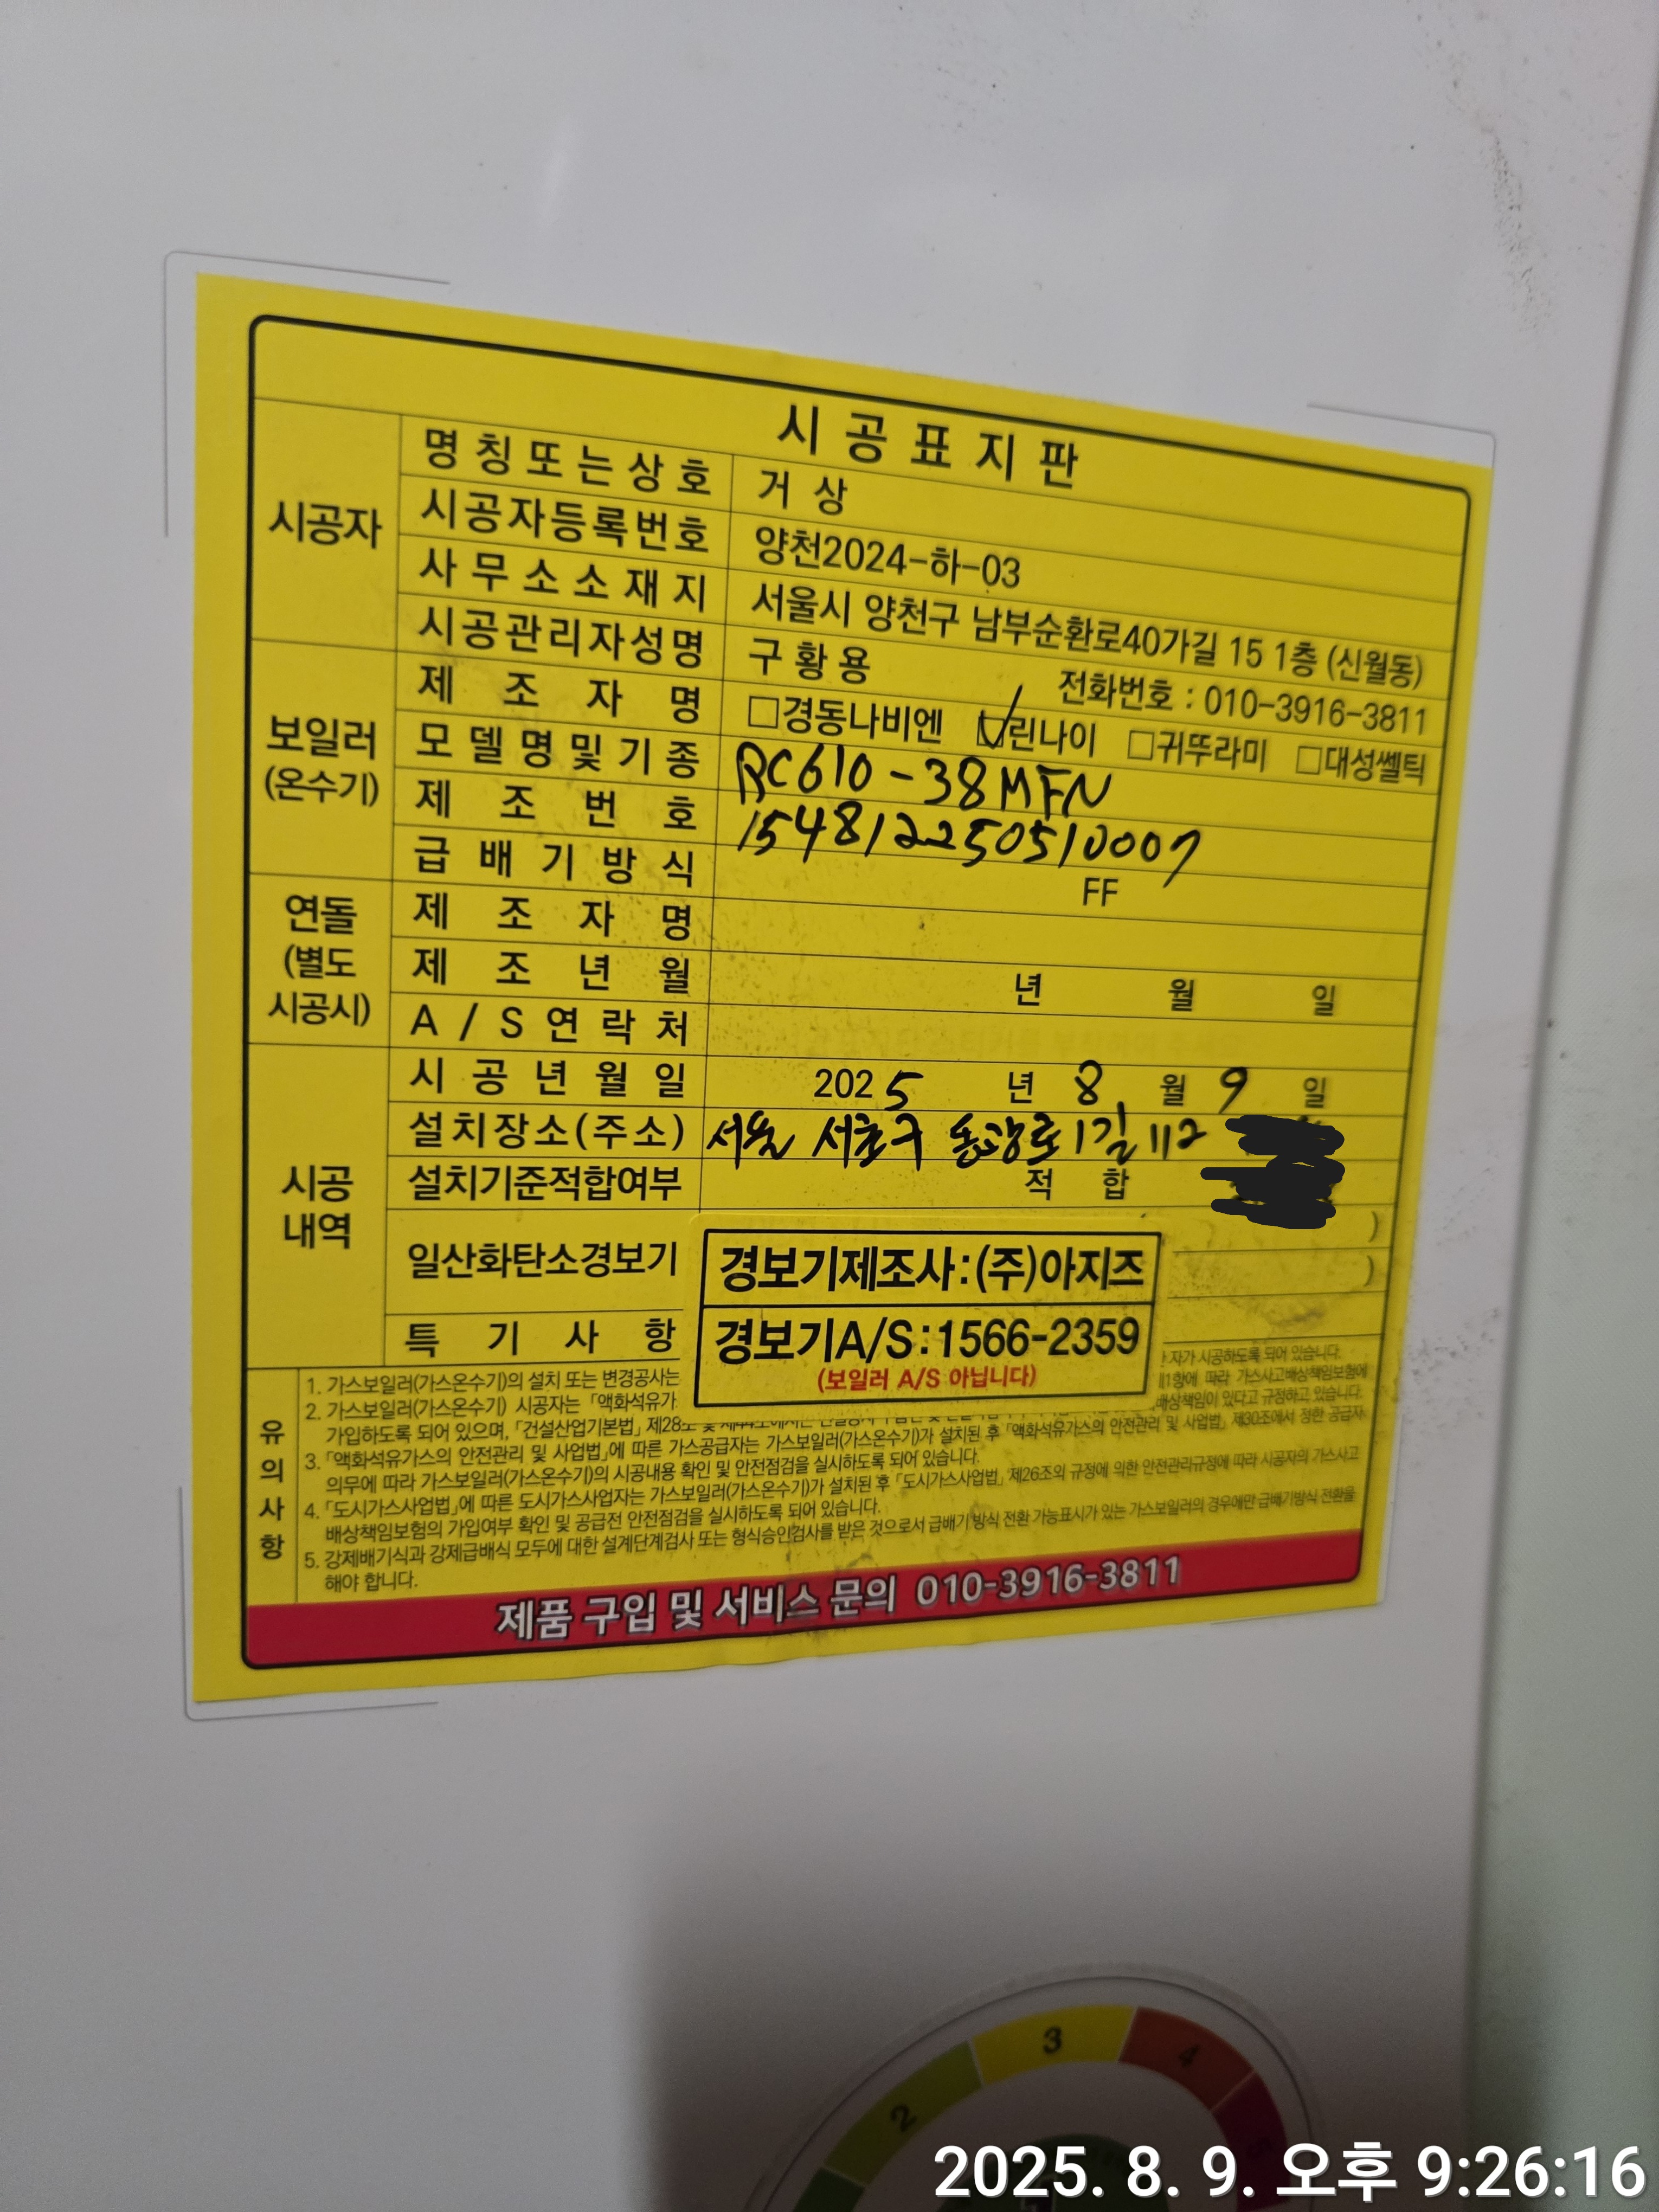 시공표지판
시공자
명칭또는상호 거상
시공자등록번호 양천2024-하-03
사무소소재지 서울시 양천구 남부순환로40가길 15 1층 (신월동)
시공관리자성명 구황용 전화번호 : 010-3916-3811
보일러
(온수기)
제조자명 □경동나비엔 ☑린나이 □귀뚜라미 □대성쎌틱
모델명및기종 RC610-38MFN
제조번호 154812250510007
급배기방식 FF
연돌
(별도
시공시)
제조자명
제조년월 년 월 일
A/S연락처
시공
내역
시공년월일 2025년 8월 9일
설치장소(주소) 서울 서초구 동광로1길 112
설치기준적합여부 적합
일산화탄소경보기 )
)
경보기제조사:(주)아지즈
경보기A/S:1566-2359
(보일러 A/S 아닙니다)
특기사항
유의사항
1. 가스보일러(가스온수기)의 설치 또는 변경공사는 자가 시공하도록 되어 있습니다.
2. 가스보일러(가스온수기) 시공자는 「액화석유가 제1항에 따라 가스사고배상책임보험에
가입하도록 되어 있으며, 「건설산업기본법」 제28조 및 배상책임이 있다고 규정하고 있습니다.
3. 「액화석유가스의 안전관리 및 사업법」에 따른 가스공급자는 가스보일러(가스온수기)가 설치된 후 「액화석유가스의 안전관리 및 사업법」 제30조에서 정한 공급자
의무에 따라 가스보일러(가스온수기)의 시공내용 확인 및 안전점검을 실시하도록 되어 있습니다.
4. 「도시가스사업법」에 따른 도시가스사업자는 가스보일러(가스온수기)가 설치된 후 「도시가스사업법」 제26조의 규정에 의한 안전관리규정에 따라 시공자의 가스사고
배상책임보험의 가입여부 확인 및 공급전 안전점검을 실시하도록 되어 있습니다.
5. 강제배기식과 강제급배식 모두에 대한 설계단계검사 또는 형식승인검사를 받은 것으로서 급배기 방식 전환 가능표시가 있는 가스보일러의 경우에만 급배기방식 전환을
해야 합니다.
제품 구입 및 서비스 문의 010-3916-3811
2 3 4 5
2025. 8. 9. 오후 9:26:16